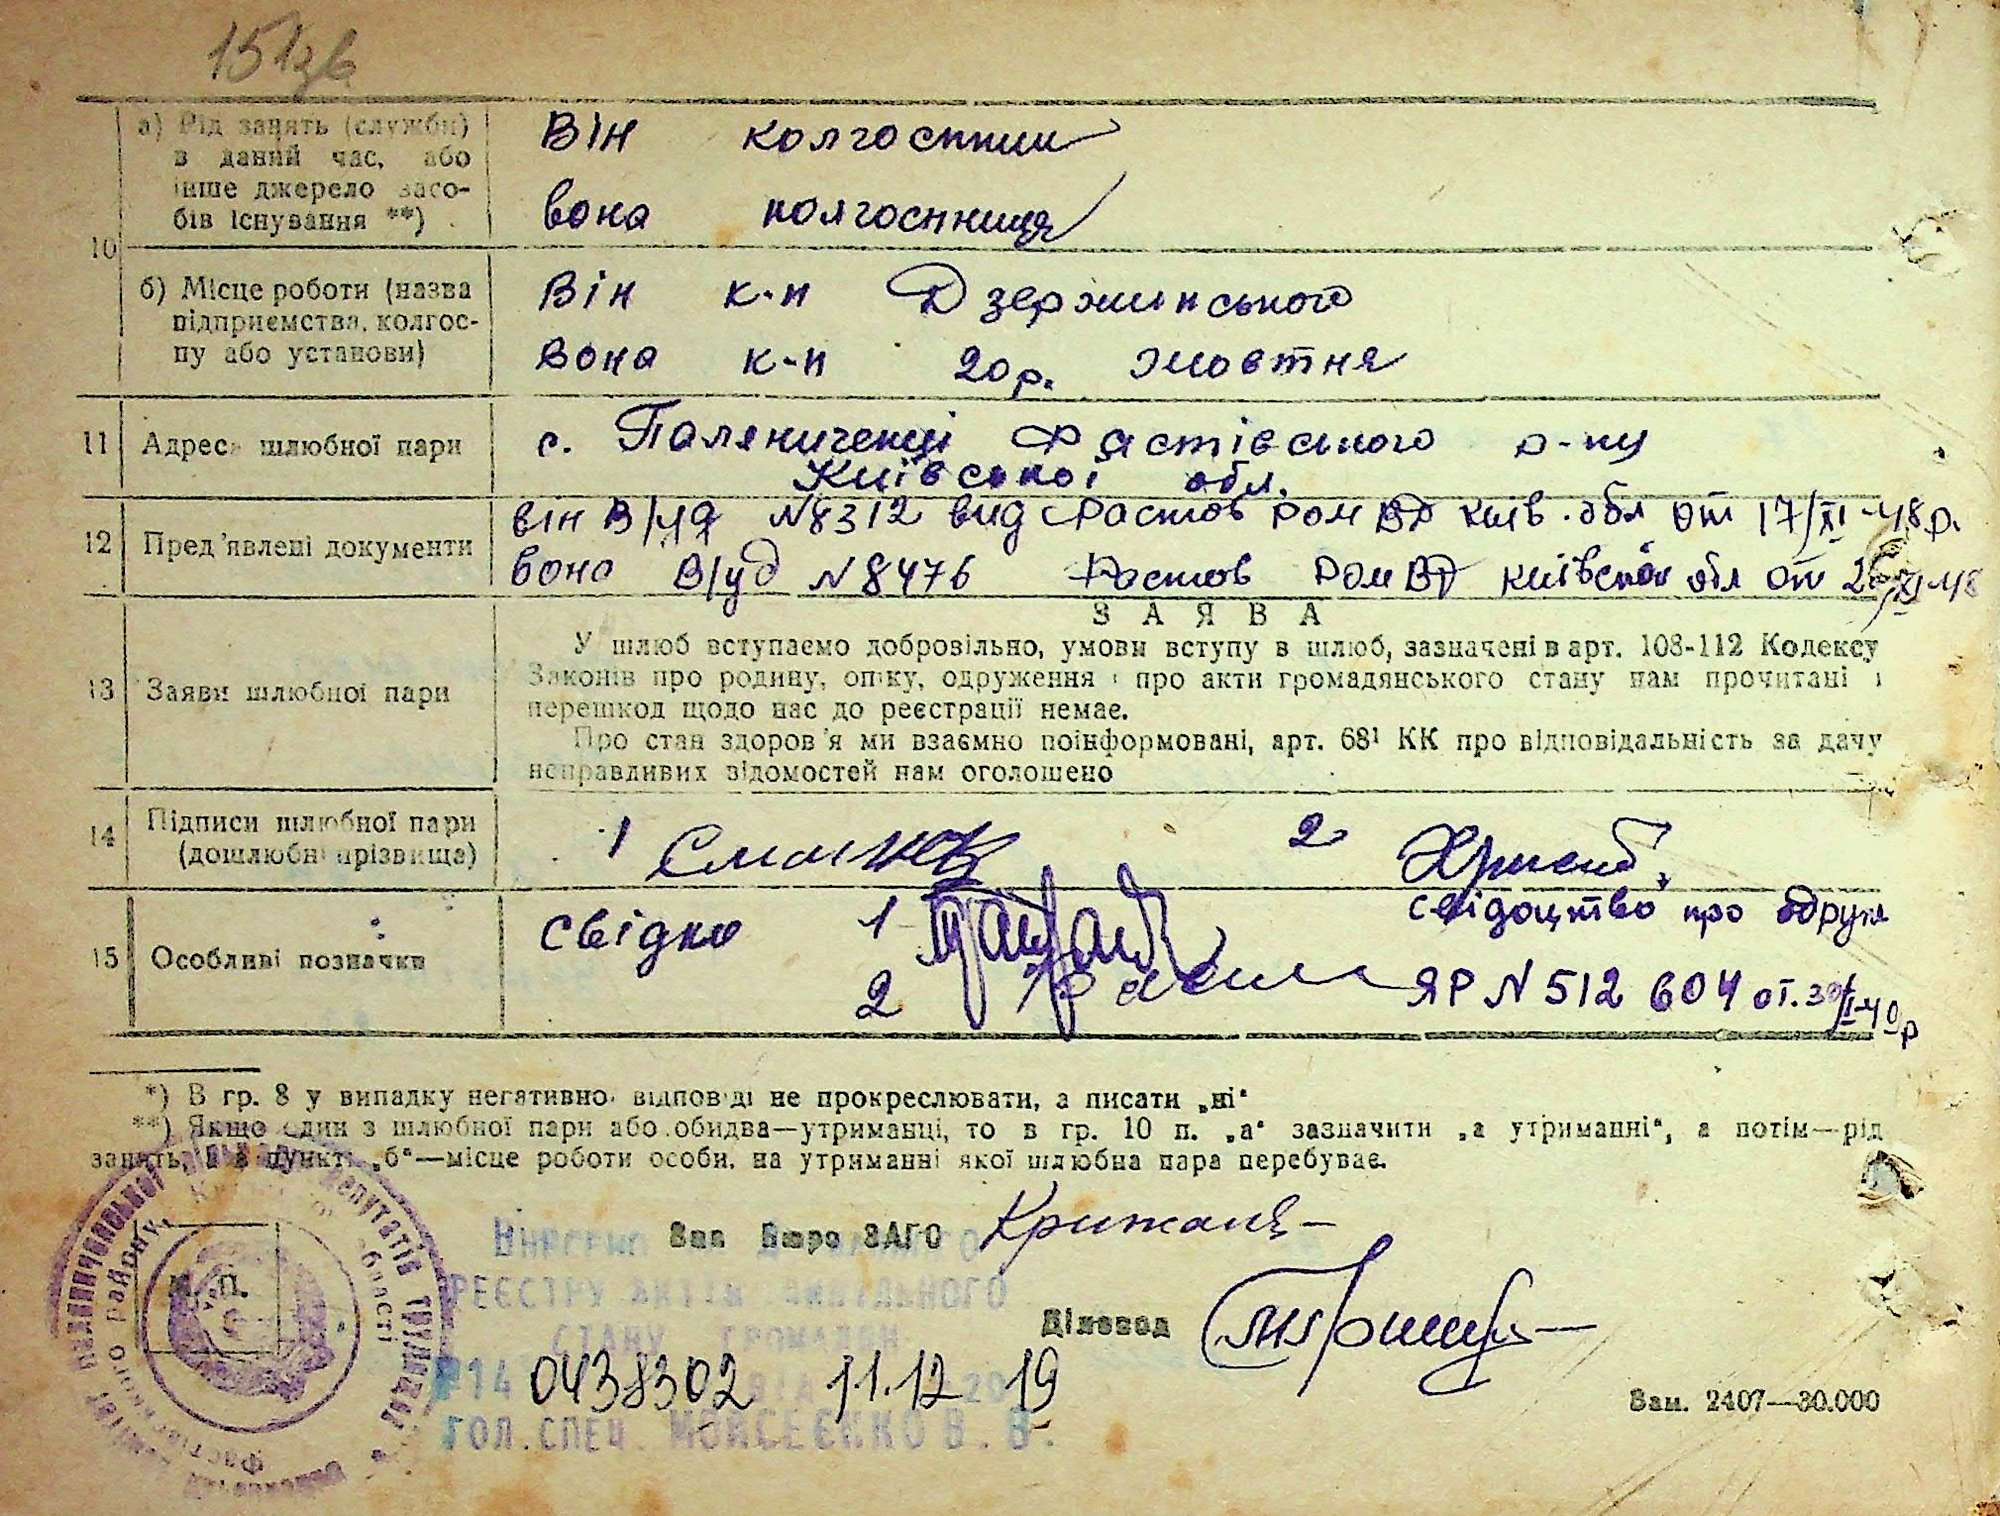 151зв
а) Рід занять (служби)
в даний час, або
інше джерело засо-
бів існування **)
Він колгоспник
вона колгоспниця
10
б) Місце роботи (назва
підприємства, колгос-
пу або установи)
Він к-п Дзержинського
Вона к-п 20 р. Жовтня
11 Адреса шлюбної пари
с. Паляниченці Фастівського р-ну
Київської обл.
12 Пред'явлені документи
він В/уд N8312 вид Фастов РОМВД Київ. обл от 17/XI-48р.
вона В/уд N8476 Фастов РОМВД Київської обл от /XI-48
13 Заяви шлюбної пари
ЗАЯВА
У шлюб вступаємо добровільно, умови вступу в шлюб, зазначені в арт. 108-112 Кодексу
Законів про родину, опіку, одруження і про акти громадянського стану нам прочитані і
перешкод щодо нас до реєстрації немає.
Про стан здоров'я ми взаємно поінформовані, арт. 68¹ КК про відповідальність за дачу
неправдивих відомостей нам оголошено
14 Підписи шлюбної пари
(дошлюбні прізвища)
1 2
15 Особливі позначки
свідки 1
2
свідоцтво про одруж
ЯР N 512604 от.
*) В гр. 8 у випадку негативної відповіді не прокреслювати, а писати „ні"
**) Якщо один з шлюбної пари або обидва—утриманці, то в гр. 10 п. „а" зазначити „а утриманні", а потім—рід
занять, а в пункті „б"—місце роботи особи, на утриманні якої шлюбна пара перебуває.
М. П.
Зав Бюро ЗАГС
Діловод
Внесено до Державного
РЕЄСТРУ АКТІВ ЦИВІЛЬНОГО
СТАНУ ГРОМАДЯН
№14 0438302 ВІД 11.12 2019
ГОЛ.СПЕЦ. МОЙСЕЄНКО В. В.
Зам. 2407—30.000